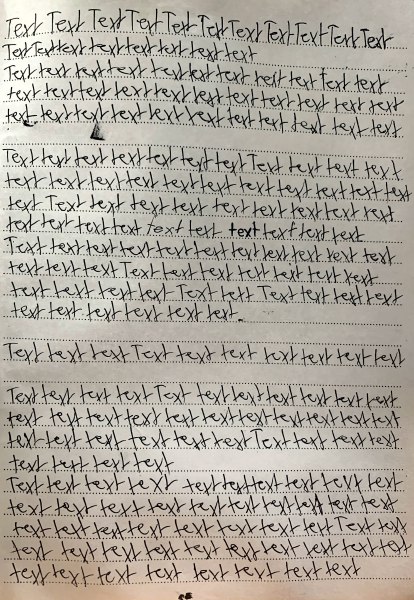 Text Text Text Text Text Text Text Text Text Text Text
Text Text text text text text text text
Text text text text text text text text text text text
text text text text text text text text text text text
text text text text text text text text text text text
Text text text text text text text Text text text text
text text text text text text text text text text text text
text Text text text text text text text text text text
text text text text text text text text text text
Text text text text text text text text text text text
text text text Text text text text text text text
text text text text Text text Text text text text
text text text text text text.
Text text text Text text text text text text text
Text text text text Text text text text text text text
text text text text text text text text text text text
text text text text text text text Text text text text
text text text text text
Text text text text text text text text text text text
text text text text text text text text text text text
text text text text text text text text text Text text
text text text text text text text text text text text
text text text text text text text text